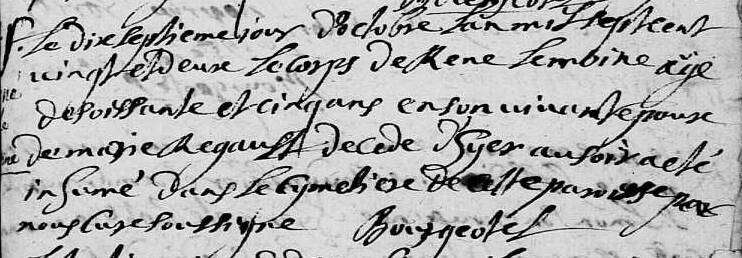 Le dixseptieme jour d'octobre l'an mil sept cent
vingt et deux le corps de René Lemoine aÿé
de soissante et cinq ans en son vivant epoux
de marie Regault decede d'hyer au soir a eté
inhumé dans le cymetiere de cette paroisse par
nous curé soussigne Bourgeotel